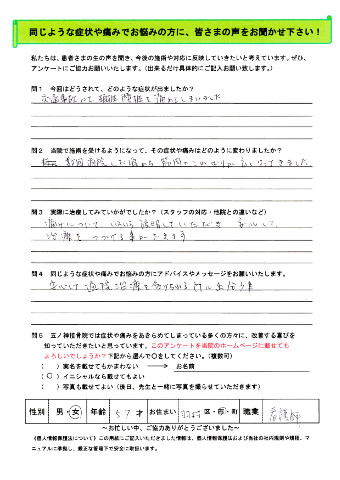 同じような症状や痛みでお悩みの方に、皆さまの声をお聞かせ下さい！
私たちは、患者さまの生の声を聞き、今後の施術や対応に反映していきたいと考えています。ぜひ、
アンケートにご協力お願いいたします。（出来るだけ具体的にご記入お願い致します。）
問１　今回はどうされて、どのような症状が出ましたか？
交通事故にて 頚椎 腰椎を痛めてしまいました
問２　当院で施術を受けるようになって、その症状や痛みはどのように変わりましたか？
数回通院した頃から 筋肉のこわばりが
なってきました
問３　実際に治療してみていかがでしたか？（スタッフの対応・他院との違いなど）
痛みについて 説明していただき 安心して
治療をつづける事ができます
問４　同じような症状や痛みでお悩みの方にアドバイスやメッセージをお願いいたします。
安心して通院治療を受けられる
問５　五ノ神接骨院では症状や痛みをあきらめてしまっている多くの方々に、改善する喜びを
知っていただきたいと思っています。このアンケートを当院のホームページに載せても
よろしいでしょうか？下記から選んで〇をしてください。（複数可）
（　）実名を載せてもかまわない　→　お名前
（〇）イニシャルなら載せてもよい
（　）写真も載せてよい（後日、先生と一緒に写真を撮らせていただきます）
性別　男・女　年齢　57才　お住まい　羽村　区・市・町　職業　看護師
～お忙しい中、ご協力ありがとうございました～
《個人情報保護法について》この用紙にご記入いただきました情報は、個人情報保護法および当社の社内規則や規程、マ
ニュアルに準拠し、厳正な管理下で安全に取扱います。